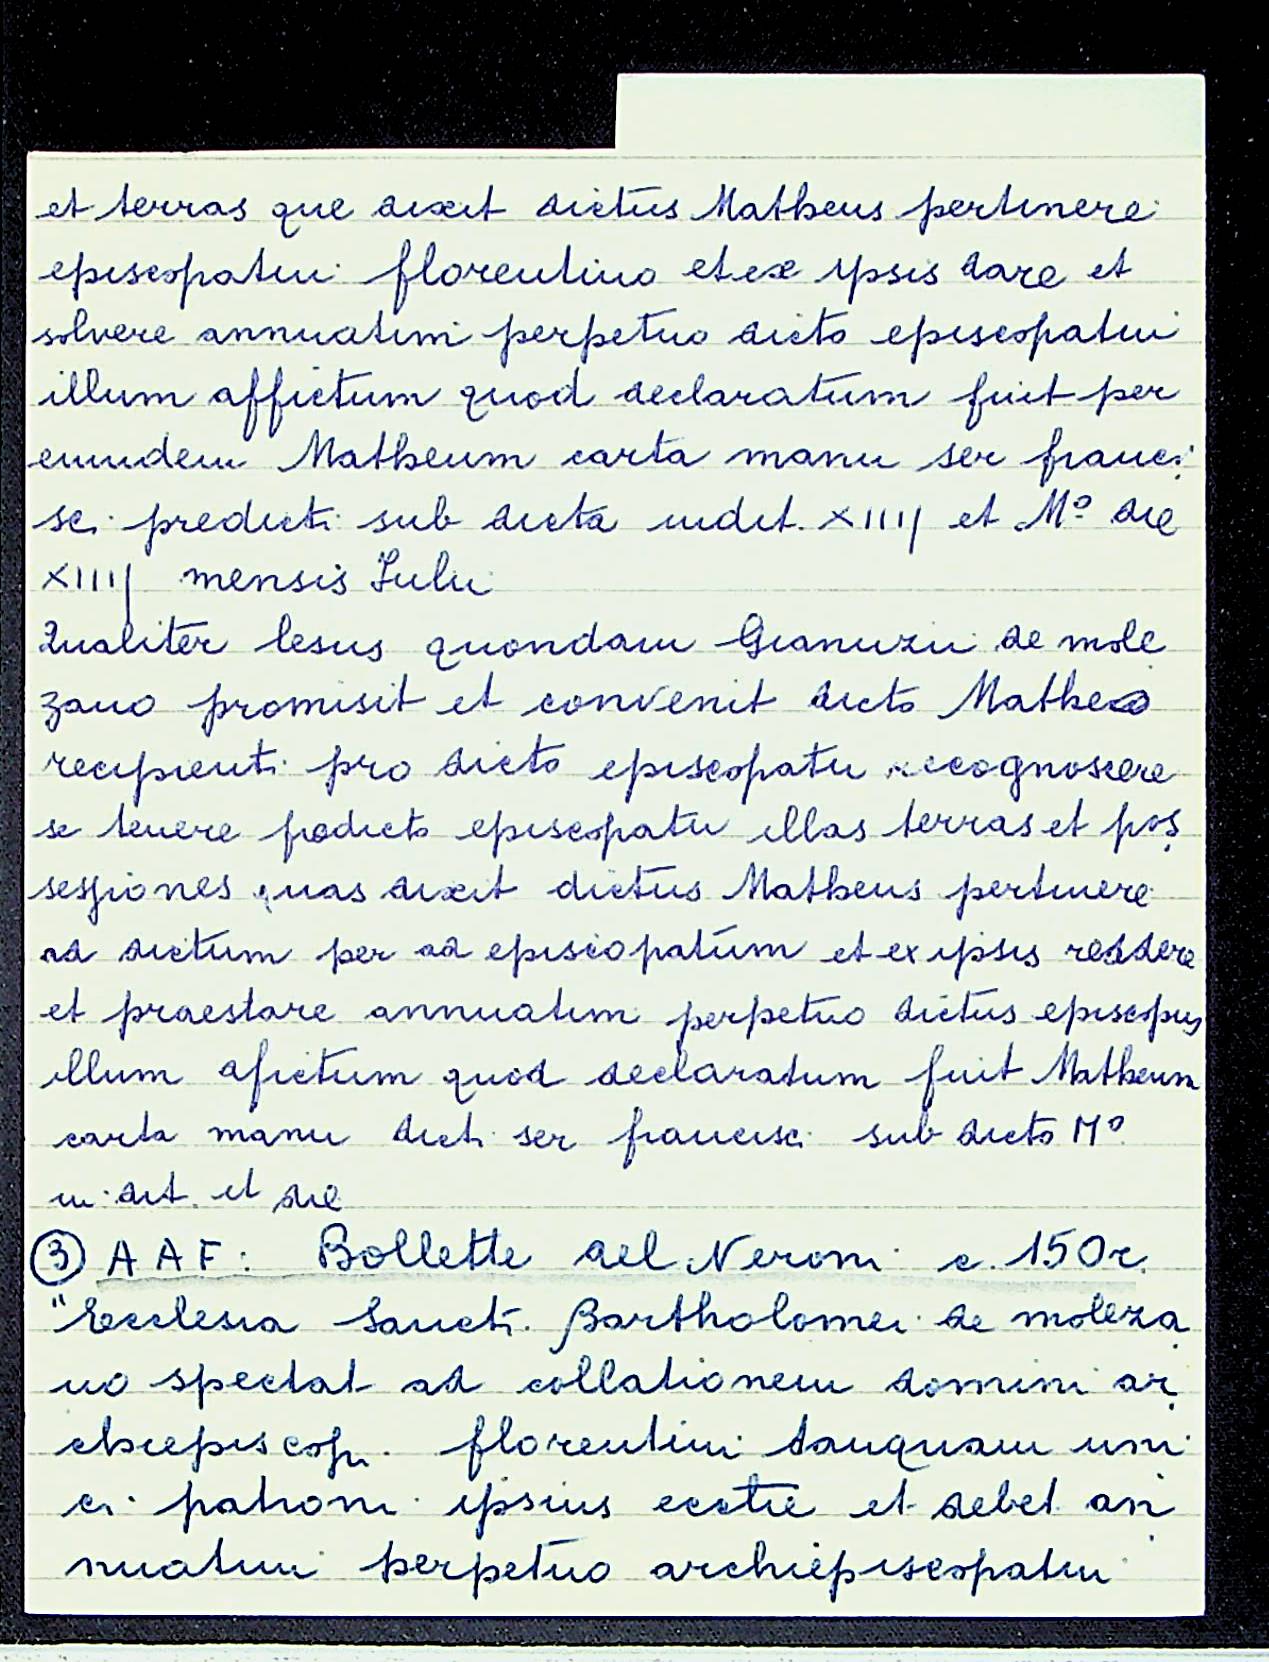 et terras que dixit dictus Matheus pertinere
episcopatui florentino et ex ypsis dare et
solvere annuatim perpetuo dicto episcopatui
illum affictum quod declaratum fuit per
eumdem Matheum carta manu ser franci
sci predicti sub dicta indit. XIIIJ et Mº die
XIIIJ mensis Iulii
Qualiter lesus quondam Gianuzii de mole
zano promisit et convenit dicto Matheo
recipienti pro dicto episcopatu recognoscere
se tenere predicto episcopatu illas terras et pos
sessiones quas dixit dictus Matheus pertinere
ad dictum per ad episcopatum et ex ipsis reddere
et praestare annuatim perpetuo dictus episcopus
illum afictum quod declaratum fuit Matheum
carta manu dicti ser francisci sub dicto Mº
in dit. et die
③ AAF: Bollette del Neroni c. 150r.
"Ecclesia Sancti Bartholomei de moleza
no spectat ad collationem domini ar
chiepiscopi florentini tanquam uni
ci patroni ipsius eccłie et debet an
nuatim perpetuo archiepiscopatui